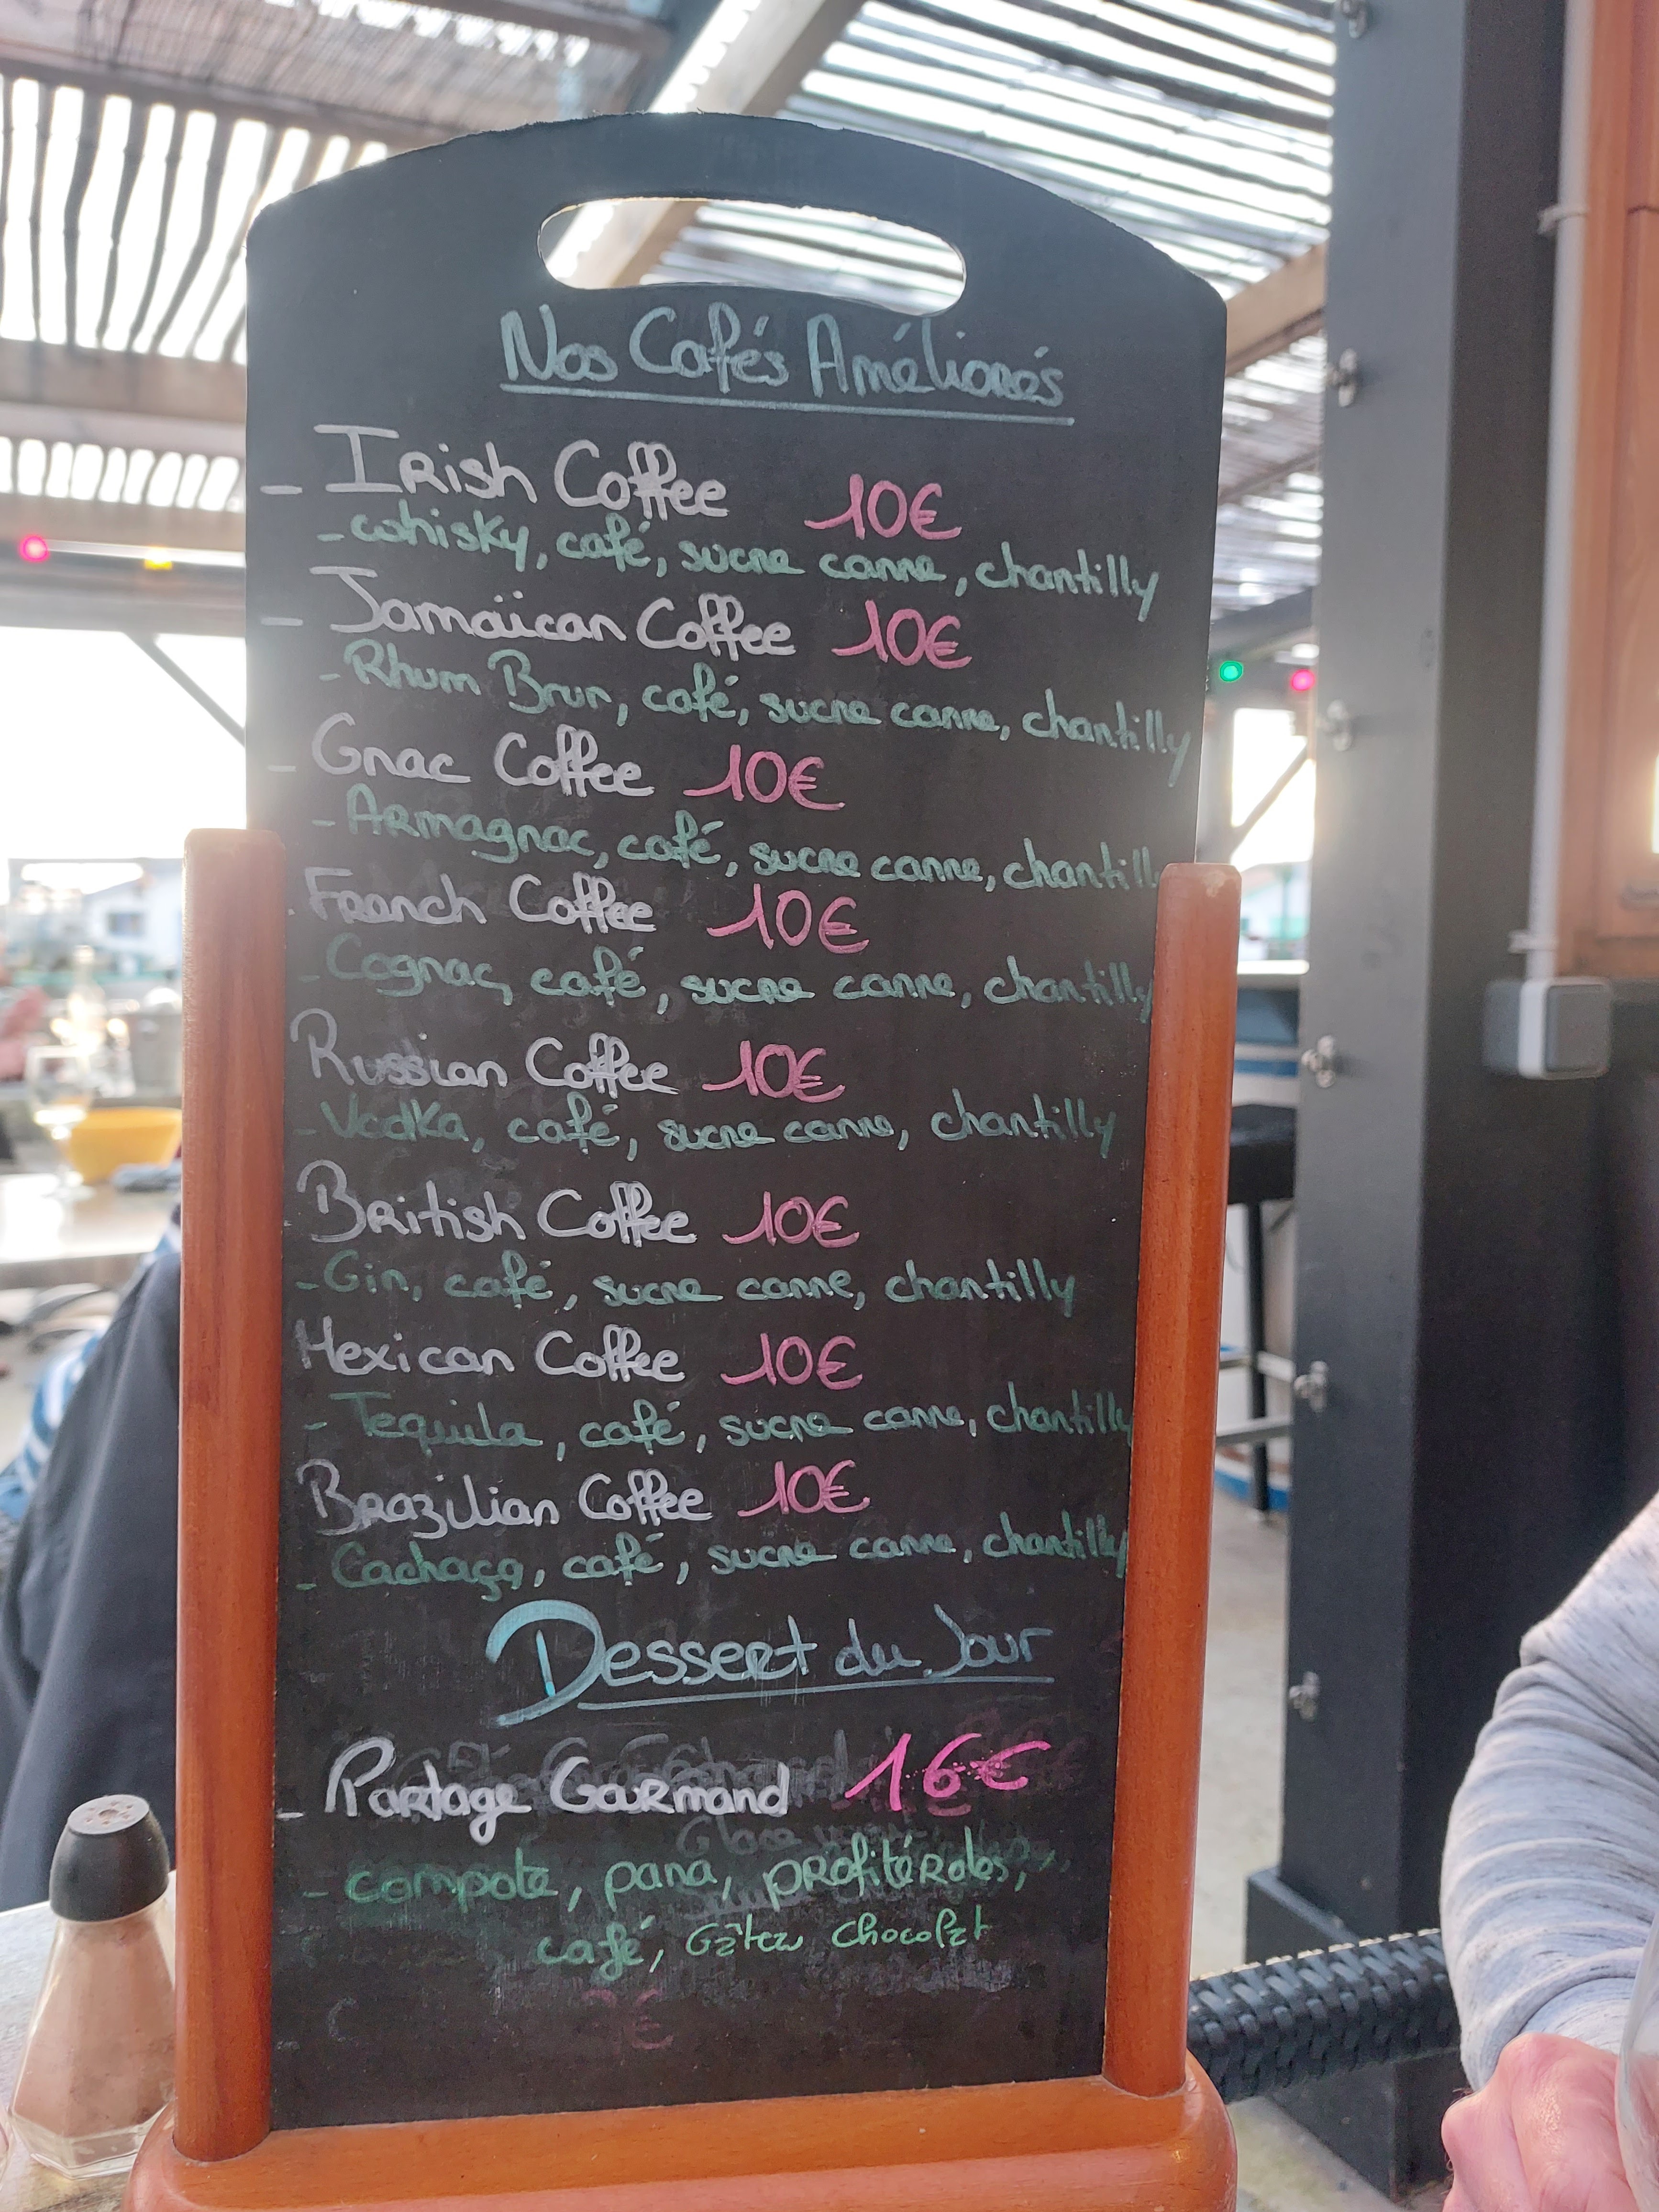 Nos Cafés Améliorés
- Irish Coffee 10€
- whisky, café, sucre canne, chantilly
- Jamaïcan Coffee 10€
- Rhum Brun, café, sucre canne, chantilly
- Gnac Coffee 10€
- Armagnac, café, sucre canne, chantilly
- French Coffee 10€
- Cognac, café, sucre canne, chantilly
Russian Coffee 10€
- Vodka, café, sucre canne, chantilly
British Coffee 10€
- Gin, café, sucre canne, chantilly
Mexican Coffee 10€
- Tequila, café, sucre canne, chantilly
Brazilian Coffee 10€
- Cachaça, café, sucre canne, chantilly
Dessert du Jour
- Partage Gourmand 16€
- compote, pana, profitéroles,
café, Gâteau chocolat